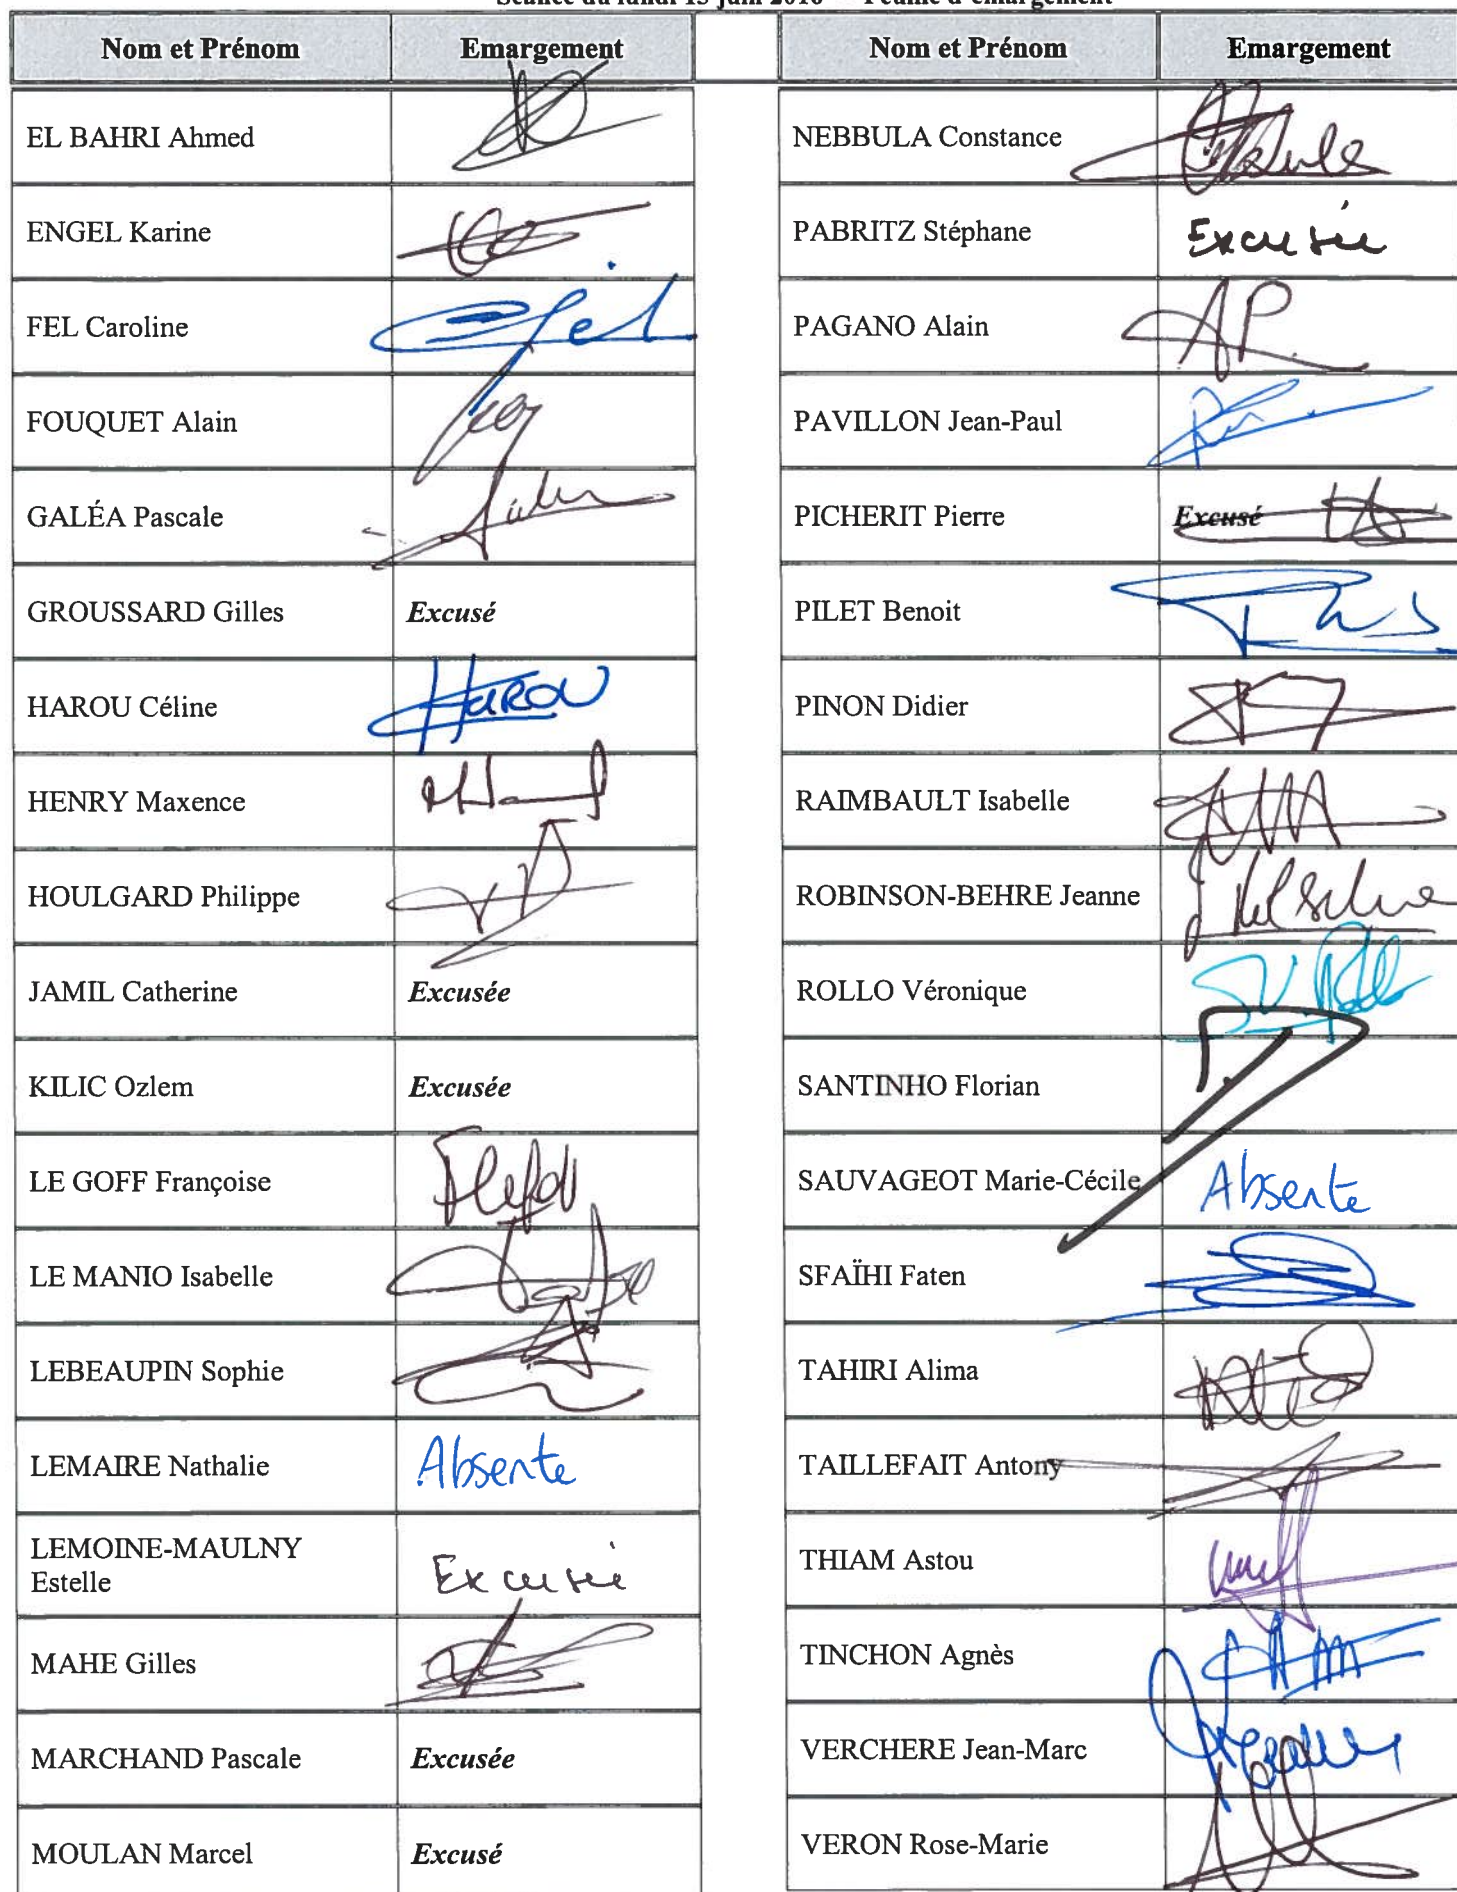 Séance du lundi 13 juin 2016 Feuille d'émargement
Nom et Prénom Emargement
EL BAHRI Ahmed
ENGEL Karine
FEL Caroline
FOUQUET Alain
GALÉA Pascale
GROUSSARD Gilles Excusé
HAROU Céline HAROU
HENRY Maxence
HOULGARD Philippe
JAMIL Catherine Excusée
KILIC Ozlem Excusée
LE GOFF Françoise
LE MANIO Isabelle
LEBEAUPIN Sophie
LEMAIRE Nathalie Absente
LEMOINE-MAULNY
Estelle Excusée
MAHE Gilles
MARCHAND Pascale Excusée
MOULAN Marcel Excusé
Nom et Prénom Emargement
NEBBULA Constance
PABRITZ Stéphane Excusée
PAGANO Alain AP
PAVILLON Jean-Paul
PICHERIT Pierre Excusé
PILET Benoit
PINON Didier
RAIMBAULT Isabelle
ROBINSON-BEHRE Jeanne
ROLLO Véronique
SANTINHO Florian
SAUVAGEOT Marie-Cécile Absente
SFAÏHI Faten
TAHIRI Alima
TAILLEFAIT Antony
THIAM Astou
TINCHON Agnès
VERCHERE Jean-Marc
VERON Rose-Marie